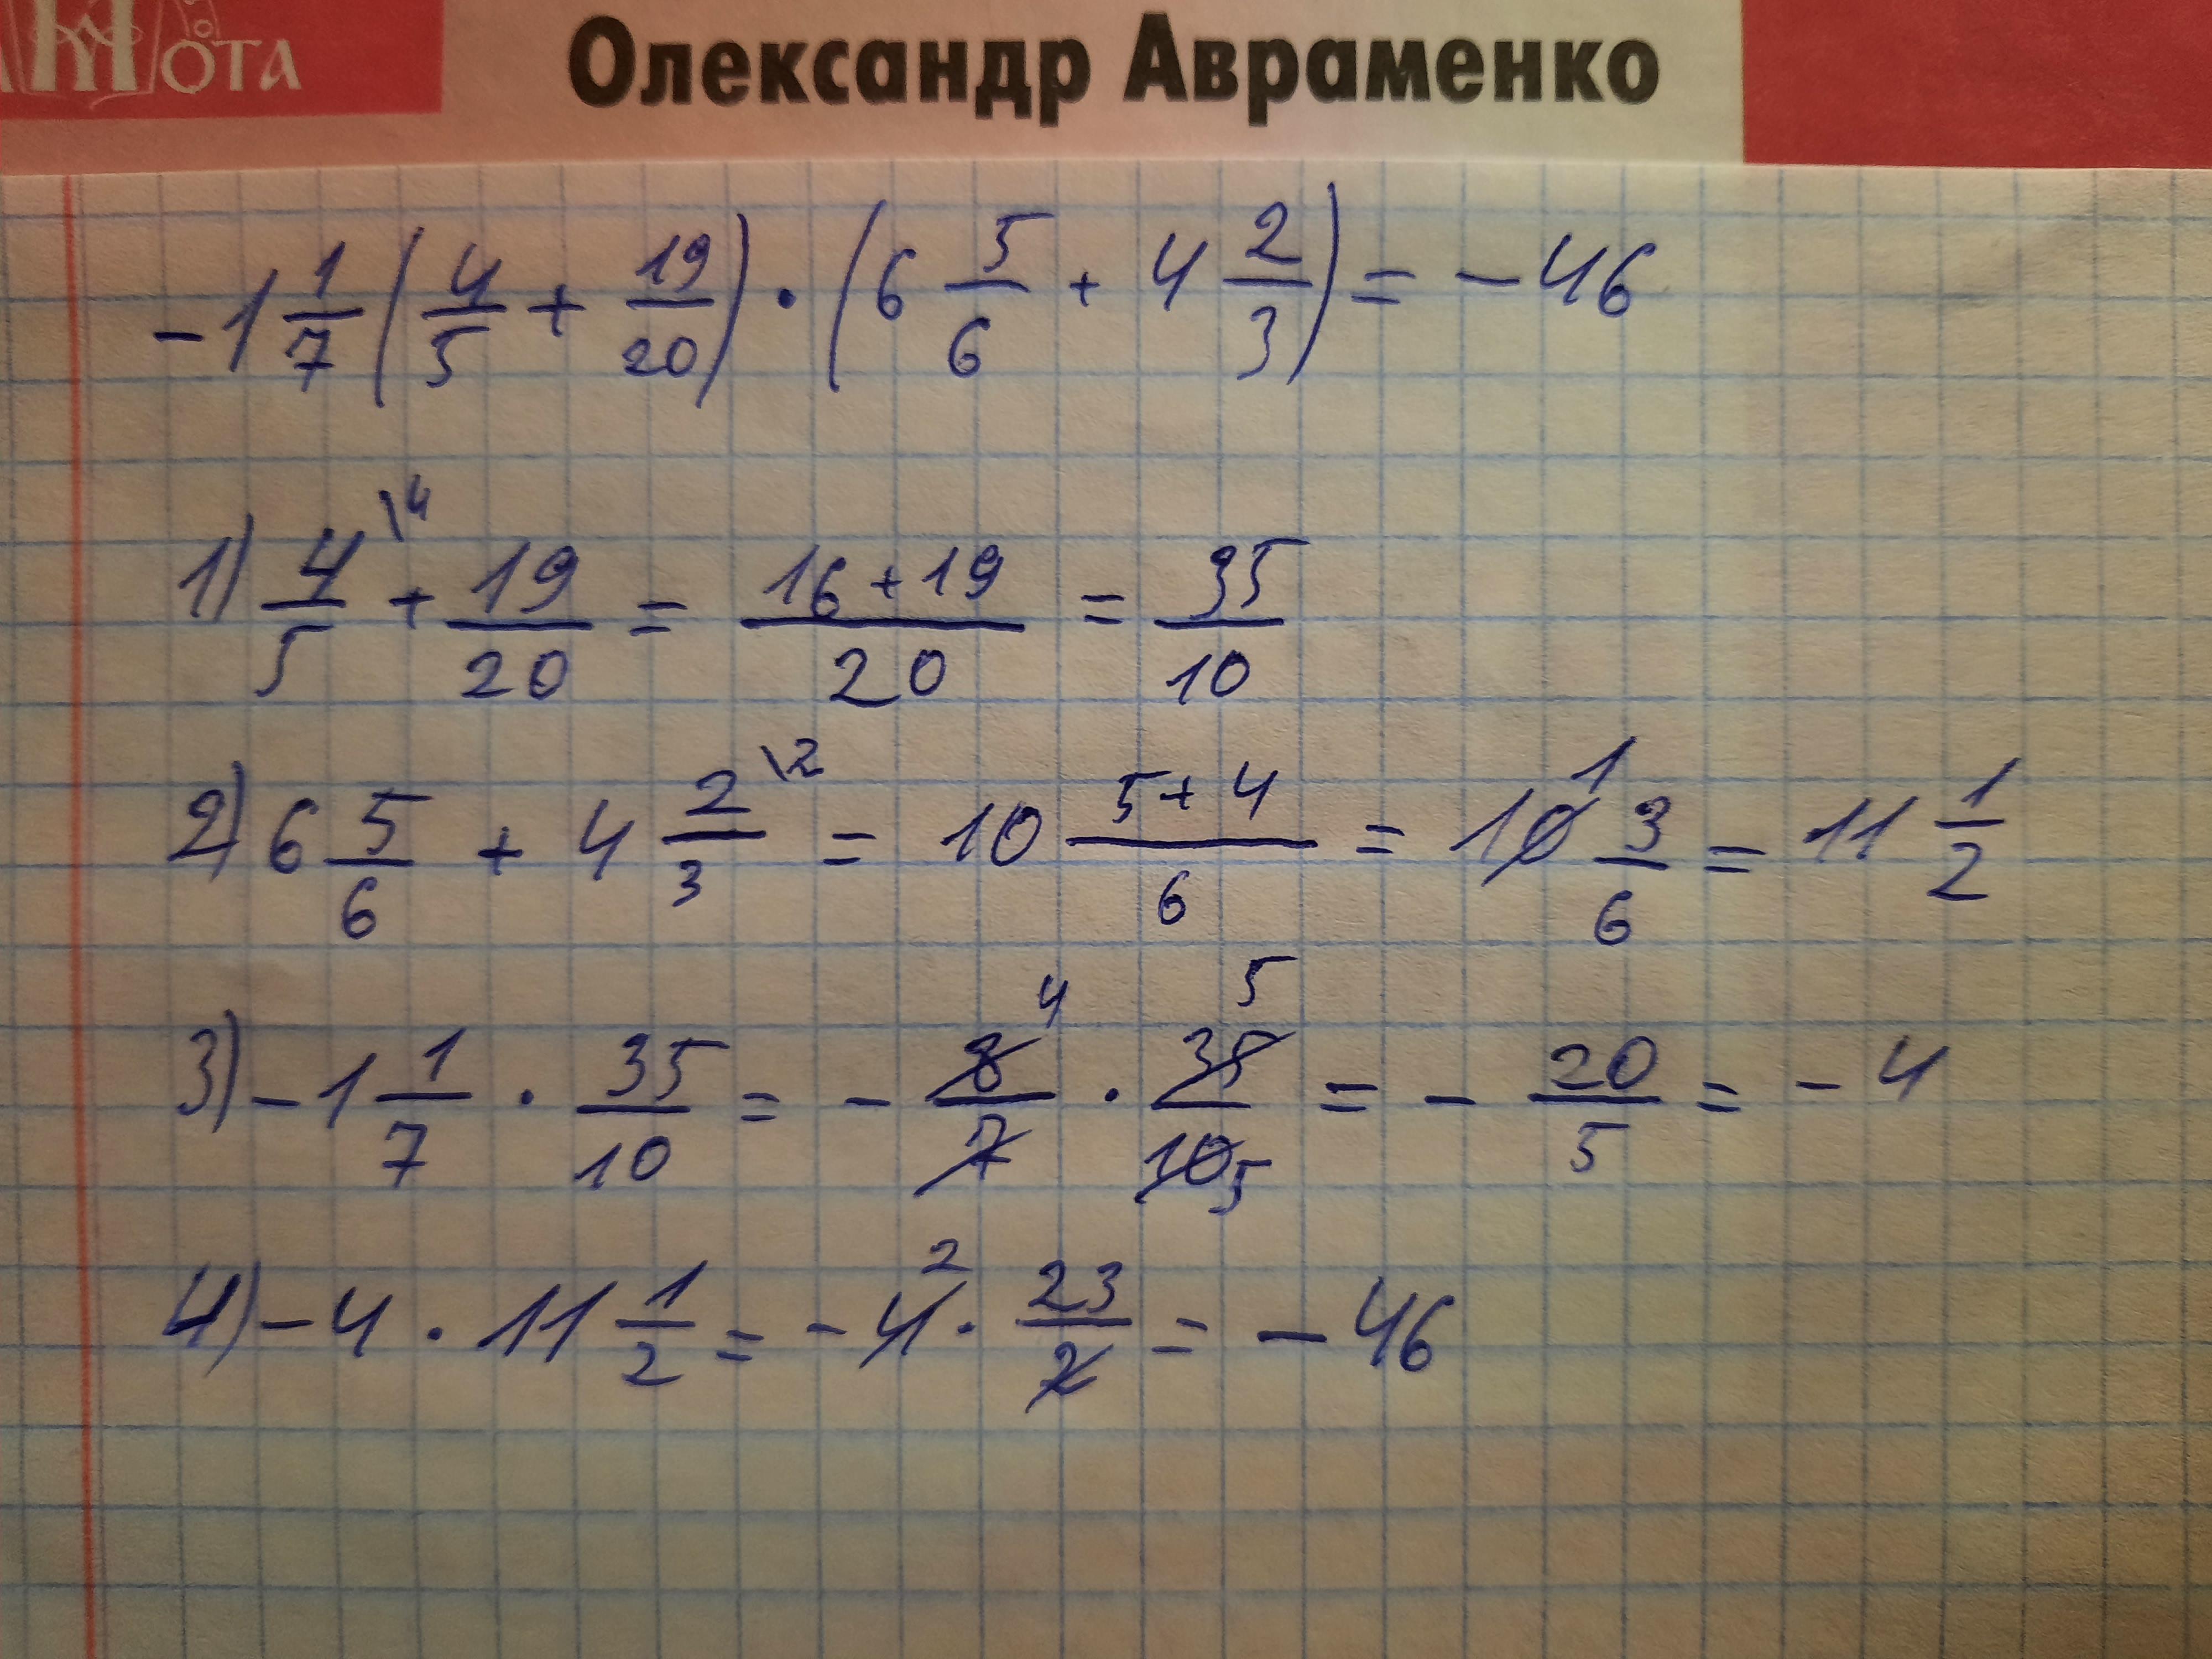 мота Олександр Авраменко
-1 1/7 (4/5 + 19/20) · (6 5/6 + 4 2/3) = -46
1) 4/5 \4 + 19/20 = (16+19)/20 = 35/10
2) 6 5/6 + 4 2/3 \2 = 10 (5+4)/6 = 10 1 3/6 = 11 1/2
3) -1 1/7 · 35/10 = - 8 4/7 · 35 5/10 5 = - 20/5 = -4
4) -4 · 11 1/2 = -4 2 · 23/2 = -46